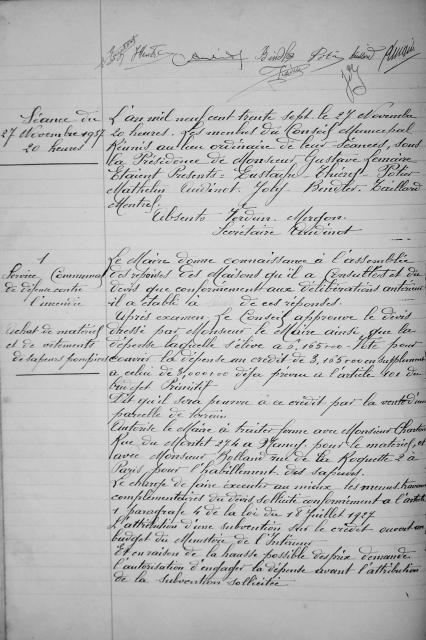 Séance du
27 Novembre 1937
20 heures
L'an mil neuf cent trente sept. le 27 Novembre
20 heures. Les membres du Conseil Municipal
Réunis au lieu ordinaire de leurs séances, sous
la Présidence de Monsieur Gustave Lemaire
Etaient Présents - Eustache Thierry
Mathelin Audinot. Joly. Bindler. Gaillard
Montrel.
Absents Verdun. Maçon.
Secrétaire Audinot
1
Service Communal
de défense contre
l'incendie
Achat de matériel
et de vêtements
de sapeurs pompiers
Le Maire donne connaissance à l'assemblée
des réponses des Maisons qu'il a consultées et du
devis que conformément aux délibérations antérieures
il a établi à de ces réponses.
Après examen. Le Conseil approuve le devis
dressé par Monsieur le Maire ainsi que la
dépense laquelle s'élève à pour
couvrir la dépense un crédit de 3,165 en supplément
à celui de 3,000 déjà prévu à l'article 101 du
budget Primitif
Dit qu'il sera pourvu à ce crédit par la vente d'une
parcelle de terrain
Autorise le Maire à traiter ferme avec Monsieur
Rue du Montet 274 à Nancy. pour le matériel, et
avec Monsieur Bolland rue de la Roquette 2 à
Paris pour l'habillement des sapeurs.
Le charge de faire exécuter au mieux les menus travaux
complémentaires du devis sollicite conformément à l'article
1 paragraphe 4 de la loi du 18 Juillet 1937
L'attribution d'une subvention sur le crédit ouvert au
budget du Ministère de l'Intérieur
Et en raison de la hausse possible des prix demande
l'autorisation d'engager la dépense avant l'attribution
de la subvention sollicitée